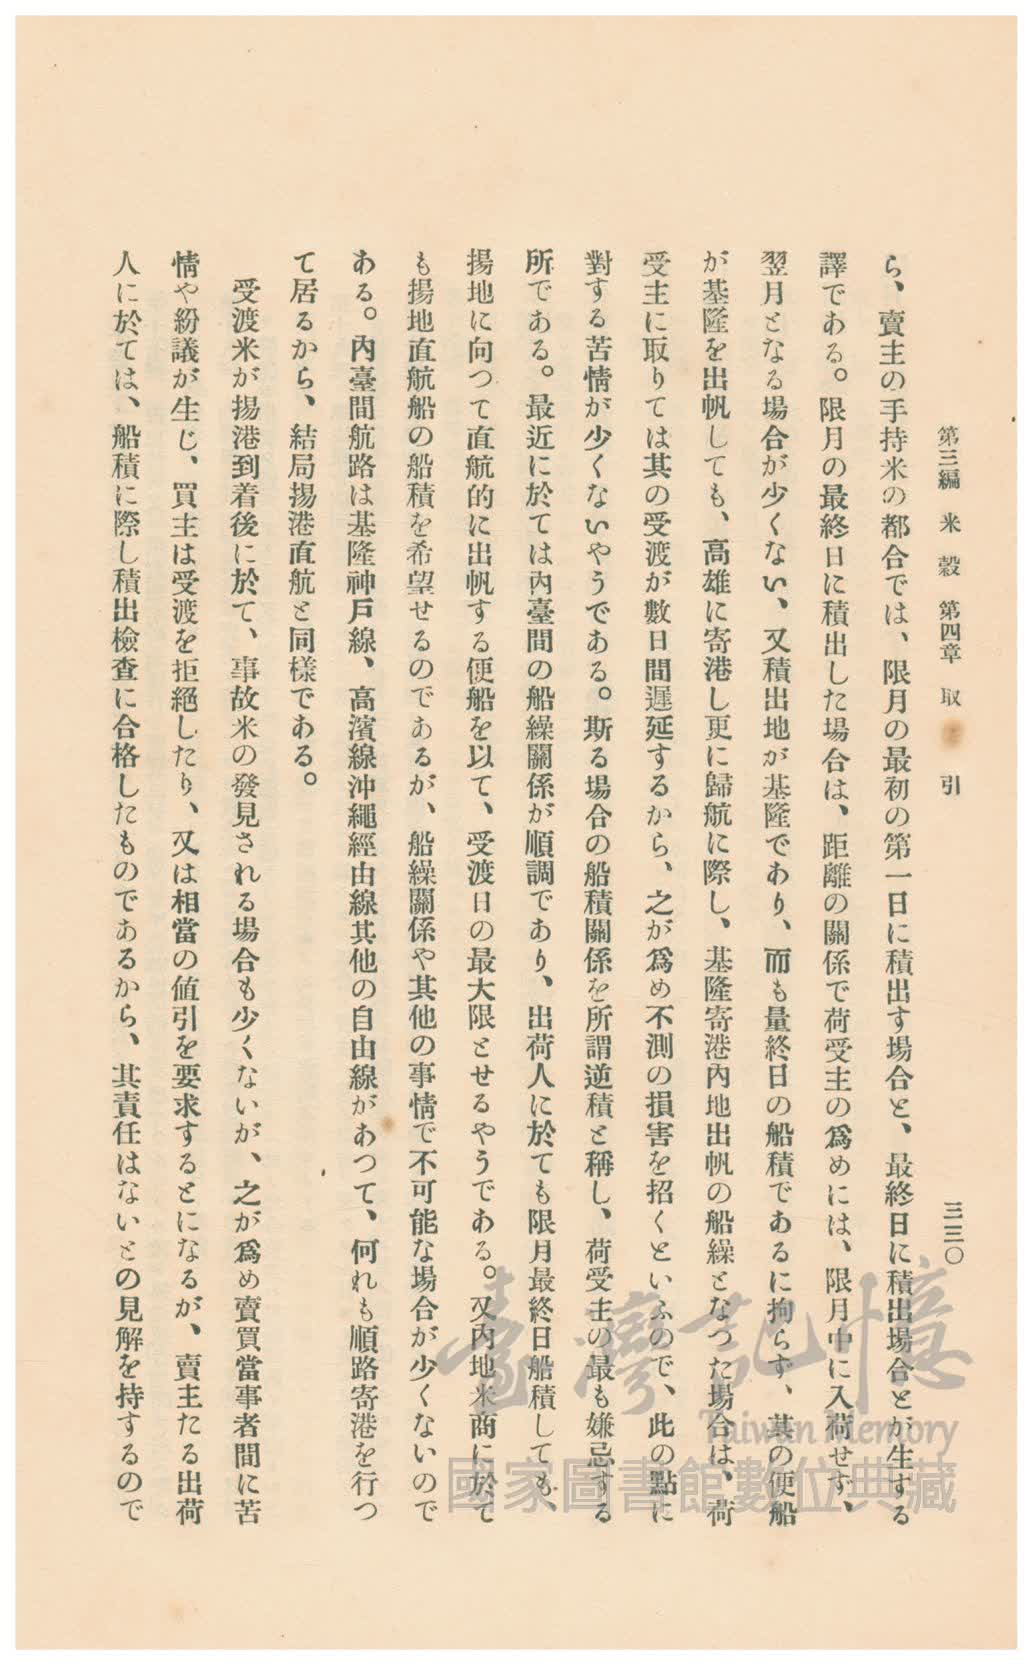 第三編　米穀　第四章　取引　三三〇
ら、賣主の手持米の都合では、限月の最初の第一日に積出す場合と、最終日に積出場合とが生する
譯である。限月の最終日に積出した場合は、距離の關係で荷受主の爲めには、限月中に入荷せず、
翌月となる場合が少くない、又積出地が基隆であり、而も量終日の船積であるに拘らず、其の便船
が基隆を出帆しても、高雄に寄港し更に歸航に際し、基隆寄港內地出帆の船繰となつた場合は、荷
受主に取りては其の受渡が數日間遲延するから、之が爲め不測の損害を招くといふので、此の點に
對する苦情が少くないやうである。斯る場合の船積關係を所謂逆積と稱し、荷受主の最も嫌忌する
所である。最近に於ては內臺間の船繰關係が順調であり、出荷人に於ても限月最終日船積しても、
揚地に向つて直航的に出帆する便船を以て、受渡日の最大限とせるやうである。又內地米商に於て
も揚地直航船の船積を希望せるのであるが、船繰關係や其他の事情で不可能な場合が少くないので
ある。內臺間航路は基隆神戸線、高濱線沖繩經由線其他の自由線があつて、何れも順路寄港を行つ
て居るから、結局揚港直航と同樣である。
受渡米が揚港到着後に於て、事故米の發見される場合も少くないが、之が爲め賣買當事者間に苦
情や紛議が生じ、買主は受渡を拒絕したり、又は相當の値引を要求するとになるが、賣主たる出荷
人に於ては、船積に際し積出檢查に合格したものであるから、其責任はないとの見解を持するので
臺灣記憶
Taiwan Memory
國家圖書館數位典藏